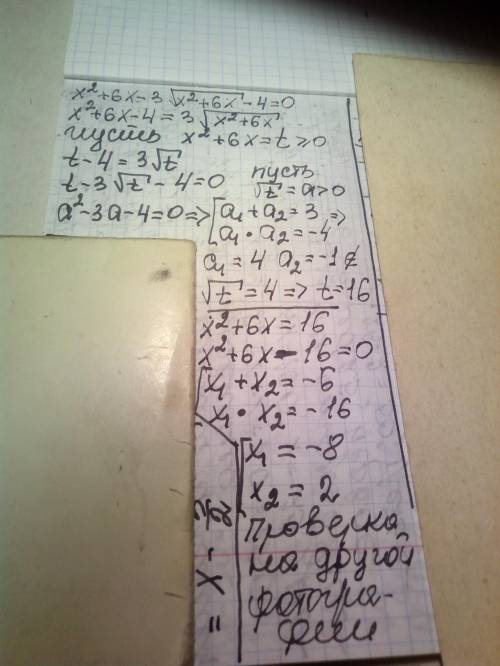 x²+6x-3√(x²+6x)-4=0
x²+6x-4=3√(x²+6x)
Пусть x²+6x=t≥0
t-4=3√t
t-3√t-4=0 пусть √t=a>0
a²-3a-4=0=>[a₁+a₂=3 =>
a₁·a₂=-4
a₁=4 a₂=-1∉
√t=4=>t=16
x²+6x=16
x²+6x-16=0
x₁+x₂=-6
x₁·x₂=-16
x₁=-8
x₂=2
Проверка
на другой
фотогра-
фии
= x -